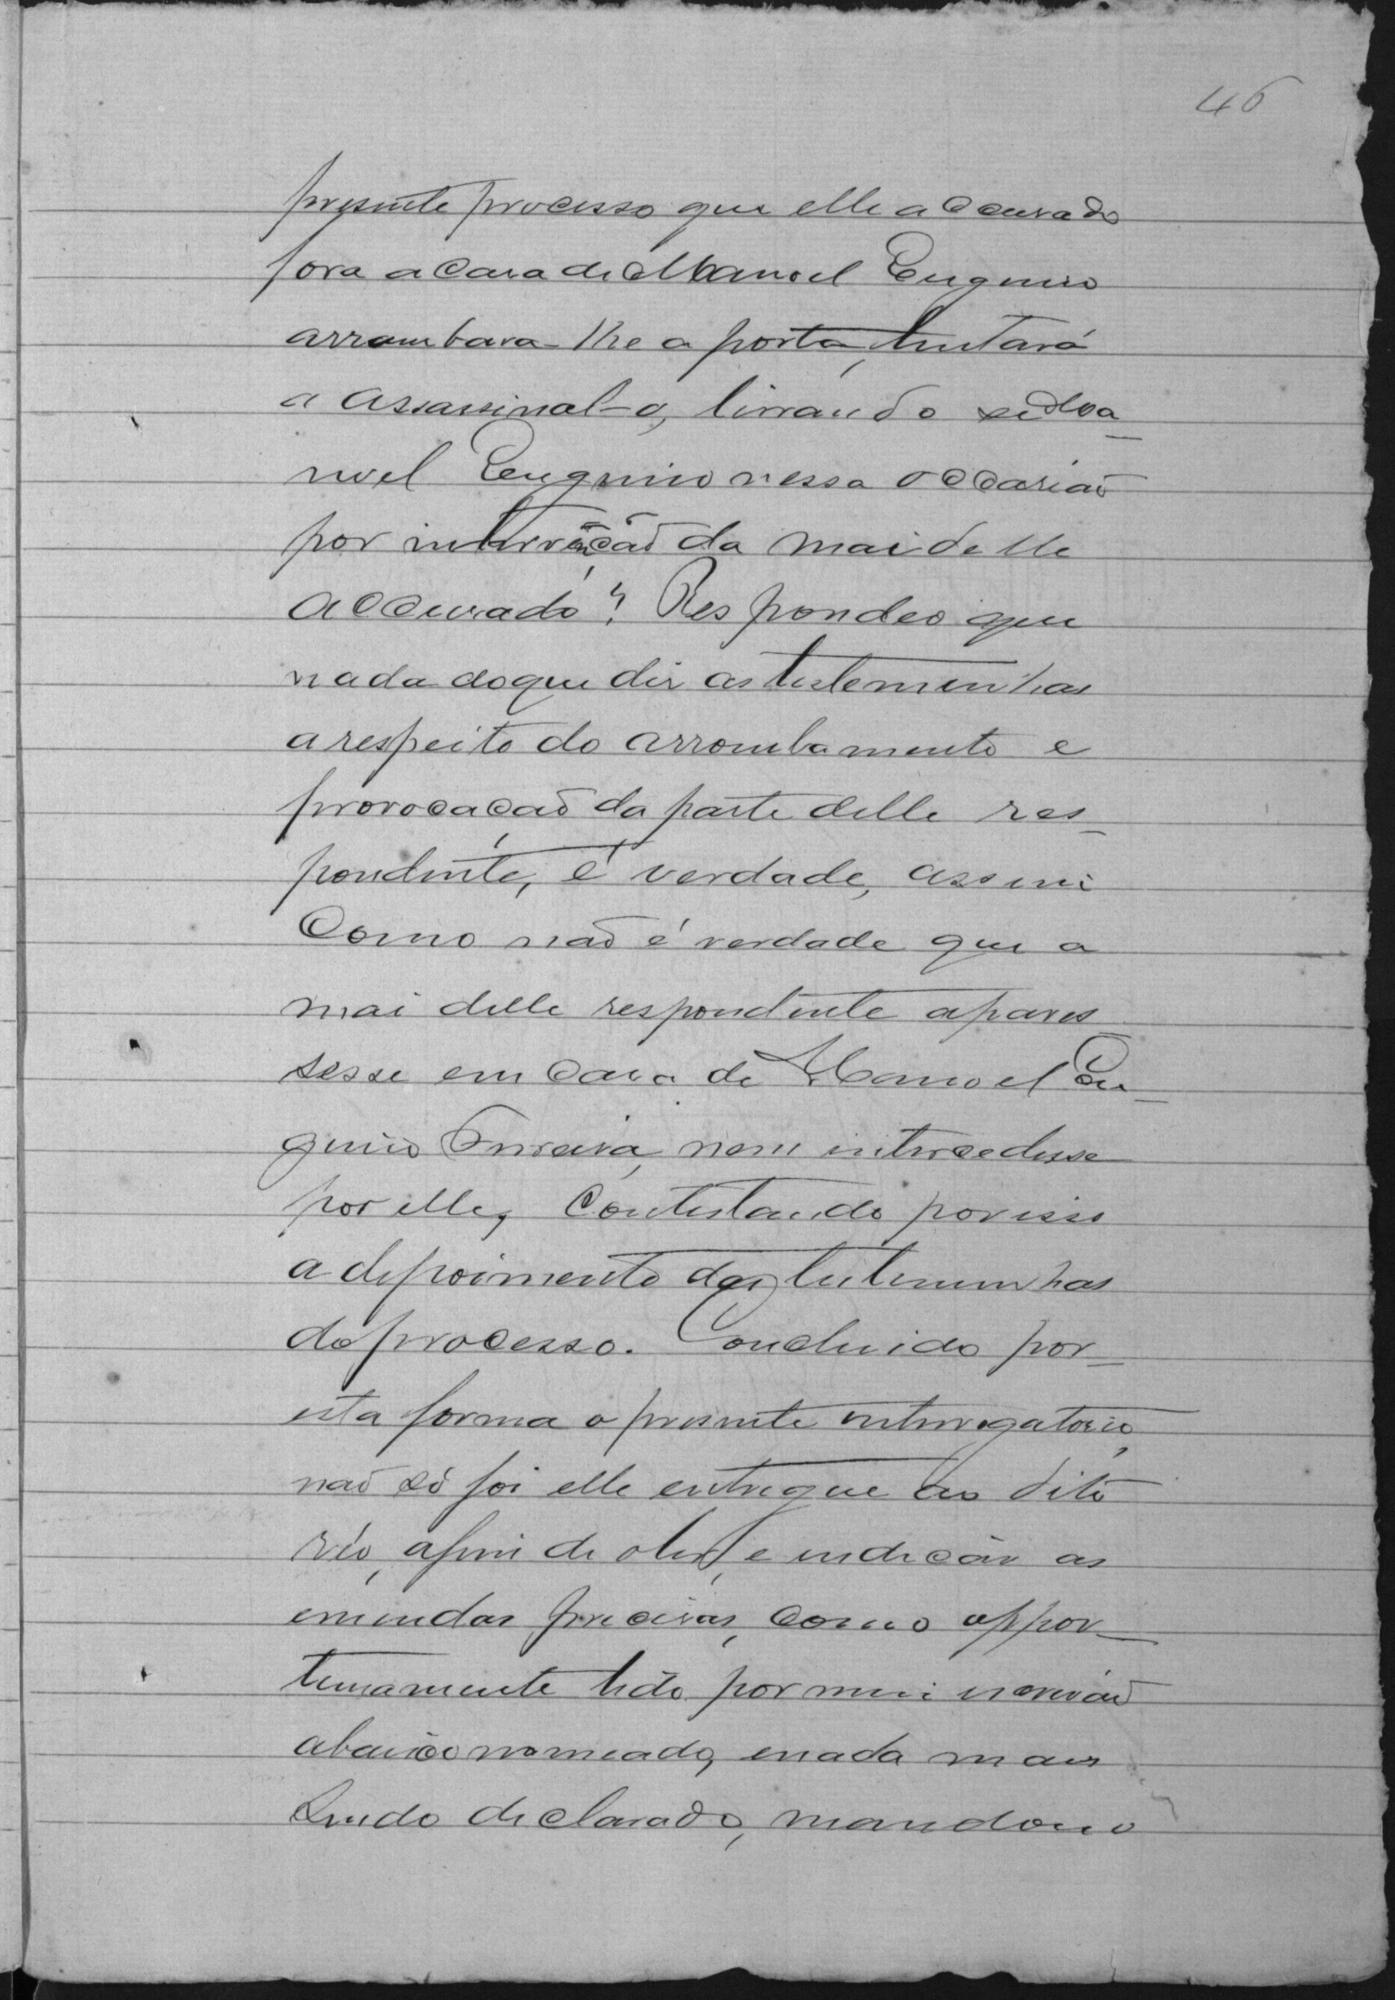 46
presente processo que elle accusado
fora a casa de Manoel Eugenio
arrombara-lhe a porta, tentára
a assassinal-o, livrando se Ma-
noel Eugenio nessa occasiaõ
por intervençaõ da mai delle
accusado? Respondeo que
nada do que diz as testeminhas
a respeito do arrombamento e
provocaçaõ da parte delle res-
pondente, é verdade, assim
como naõ é verdade que a
mai delle respondente apares
sesse em casa de Manoel Eu-
genio Ferreira, nem intercedesse
por elle, contestando por isso
a depoimento das testemunhas
do processo. Concluido por-
esta forma o presente interrogatorio,
naõ só foi elle entregue ao dito
réo, afim de o ler, e indicár as
emendas precisas, como oppor-
tunamente lido por mim escrivaõ
abaixo nomeado, e nada mais
sendo declarado, mandou o